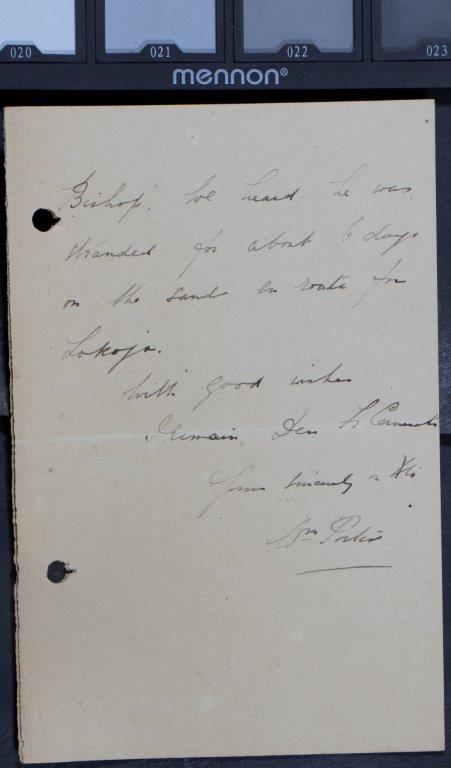 020 021 022 023
mennon®
Bishop. We heard he was
stranded for about 6 days
on the sand en route for
Lokoja.
With good wishes
I remain, Dear
Yours sincerely in
Wm Porter